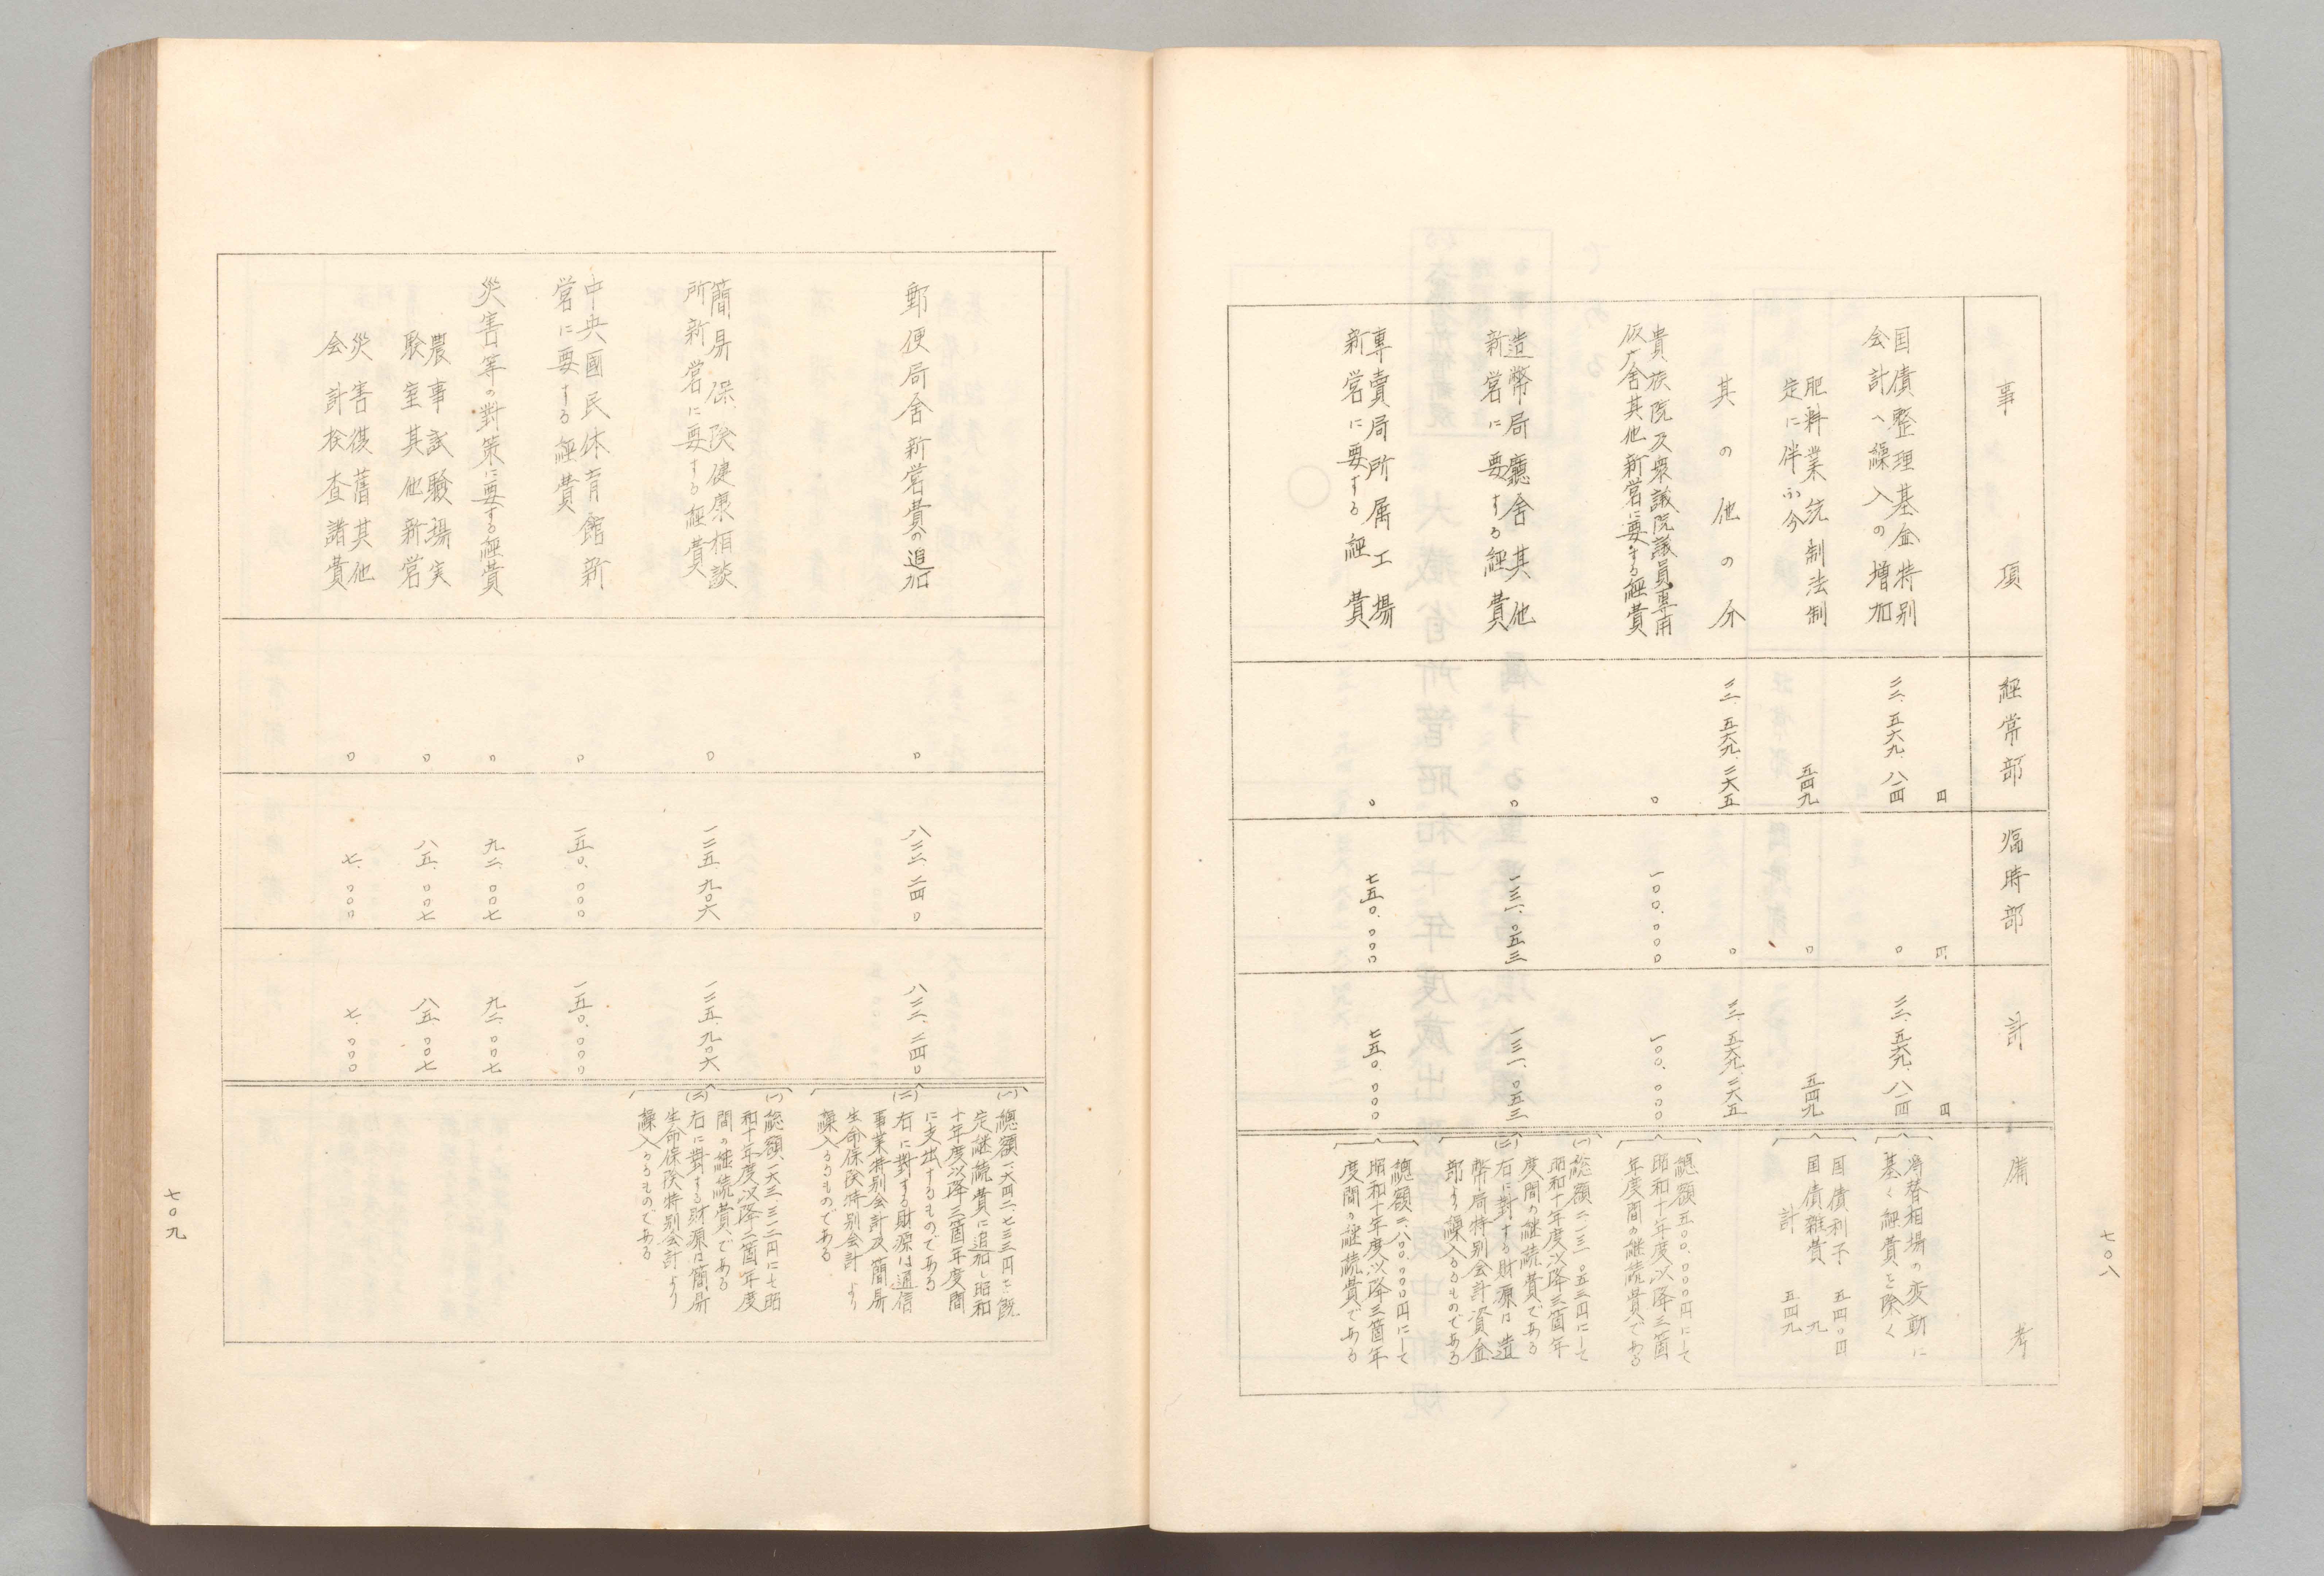 七〇八
事項
経常部
臨時部
計
備考
円
円
円
国債整理基金特別
会計へ繰入の増加
三二、五六九、八一四
〇
三二、五六九、八一四
為替相場の変動に
基く経費を除く
肥料業統制法制
定に伴ふ分
五四九
〇
五四九
国債利子 五四〇円
国債雑費 九
計 五四九
其の他の分
三二、五六九、二六五
〇
三二、五六九、二六五
貴族院及衆議院議員専用
仮庁舎其他新営に要する経費
〇
一〇〇、〇〇〇
一〇〇、〇〇〇
総額五〇〇、〇〇〇円にして
昭和十年度以降三箇
年度間の継続費である
造幣局廳舎其他
新営に要する経費
〇
一三一、〇五三
一三一、〇五三
(一)総額二三一、〇五三円にして
昭和十年度以降三箇年
度間の継続費である
(二)右に對する財源は造
幣局特別会計資金
部より繰入るるものである
専賣局所属工場
新営に要する経費
〇
七五〇、〇〇〇
七五〇、〇〇〇
総額二、八〇〇、〇〇〇円にして
昭和十年度以降三箇年
度間の継続費である
郵便局舎新営費の追加
〇
八三二、二四〇
八三二、二四〇
(一)総額一、六四二、七三三円を既
定継続費に追加し昭和
十年度以降三箇年度間
に支出するものである
(二)右に對する財源は通信
事業特別会計及簡易
生命保険特別会計より
繰入るるものである
簡易保険健康相談
所新営に要する経費
〇
一二五、九〇六
一二五、九〇六
(一)総額一六三、三一二円にして昭
和十年度以降二箇年度
間の継続費である
(二)右に對する財源は簡易
生命保険特別会計より
繰入るるものである
中央國民体育館新
営に要する経費
〇
一五〇、〇〇〇
一五〇、〇〇〇
災害等の對策に要する経費
〇
九二、〇〇七
九二、〇〇七
農事試験場実
験室其他新営
〇
八五、〇〇七
八五、〇〇七
災害復舊其他
会計検査諸費
〇
七、〇〇〇
七、〇〇〇
七〇九